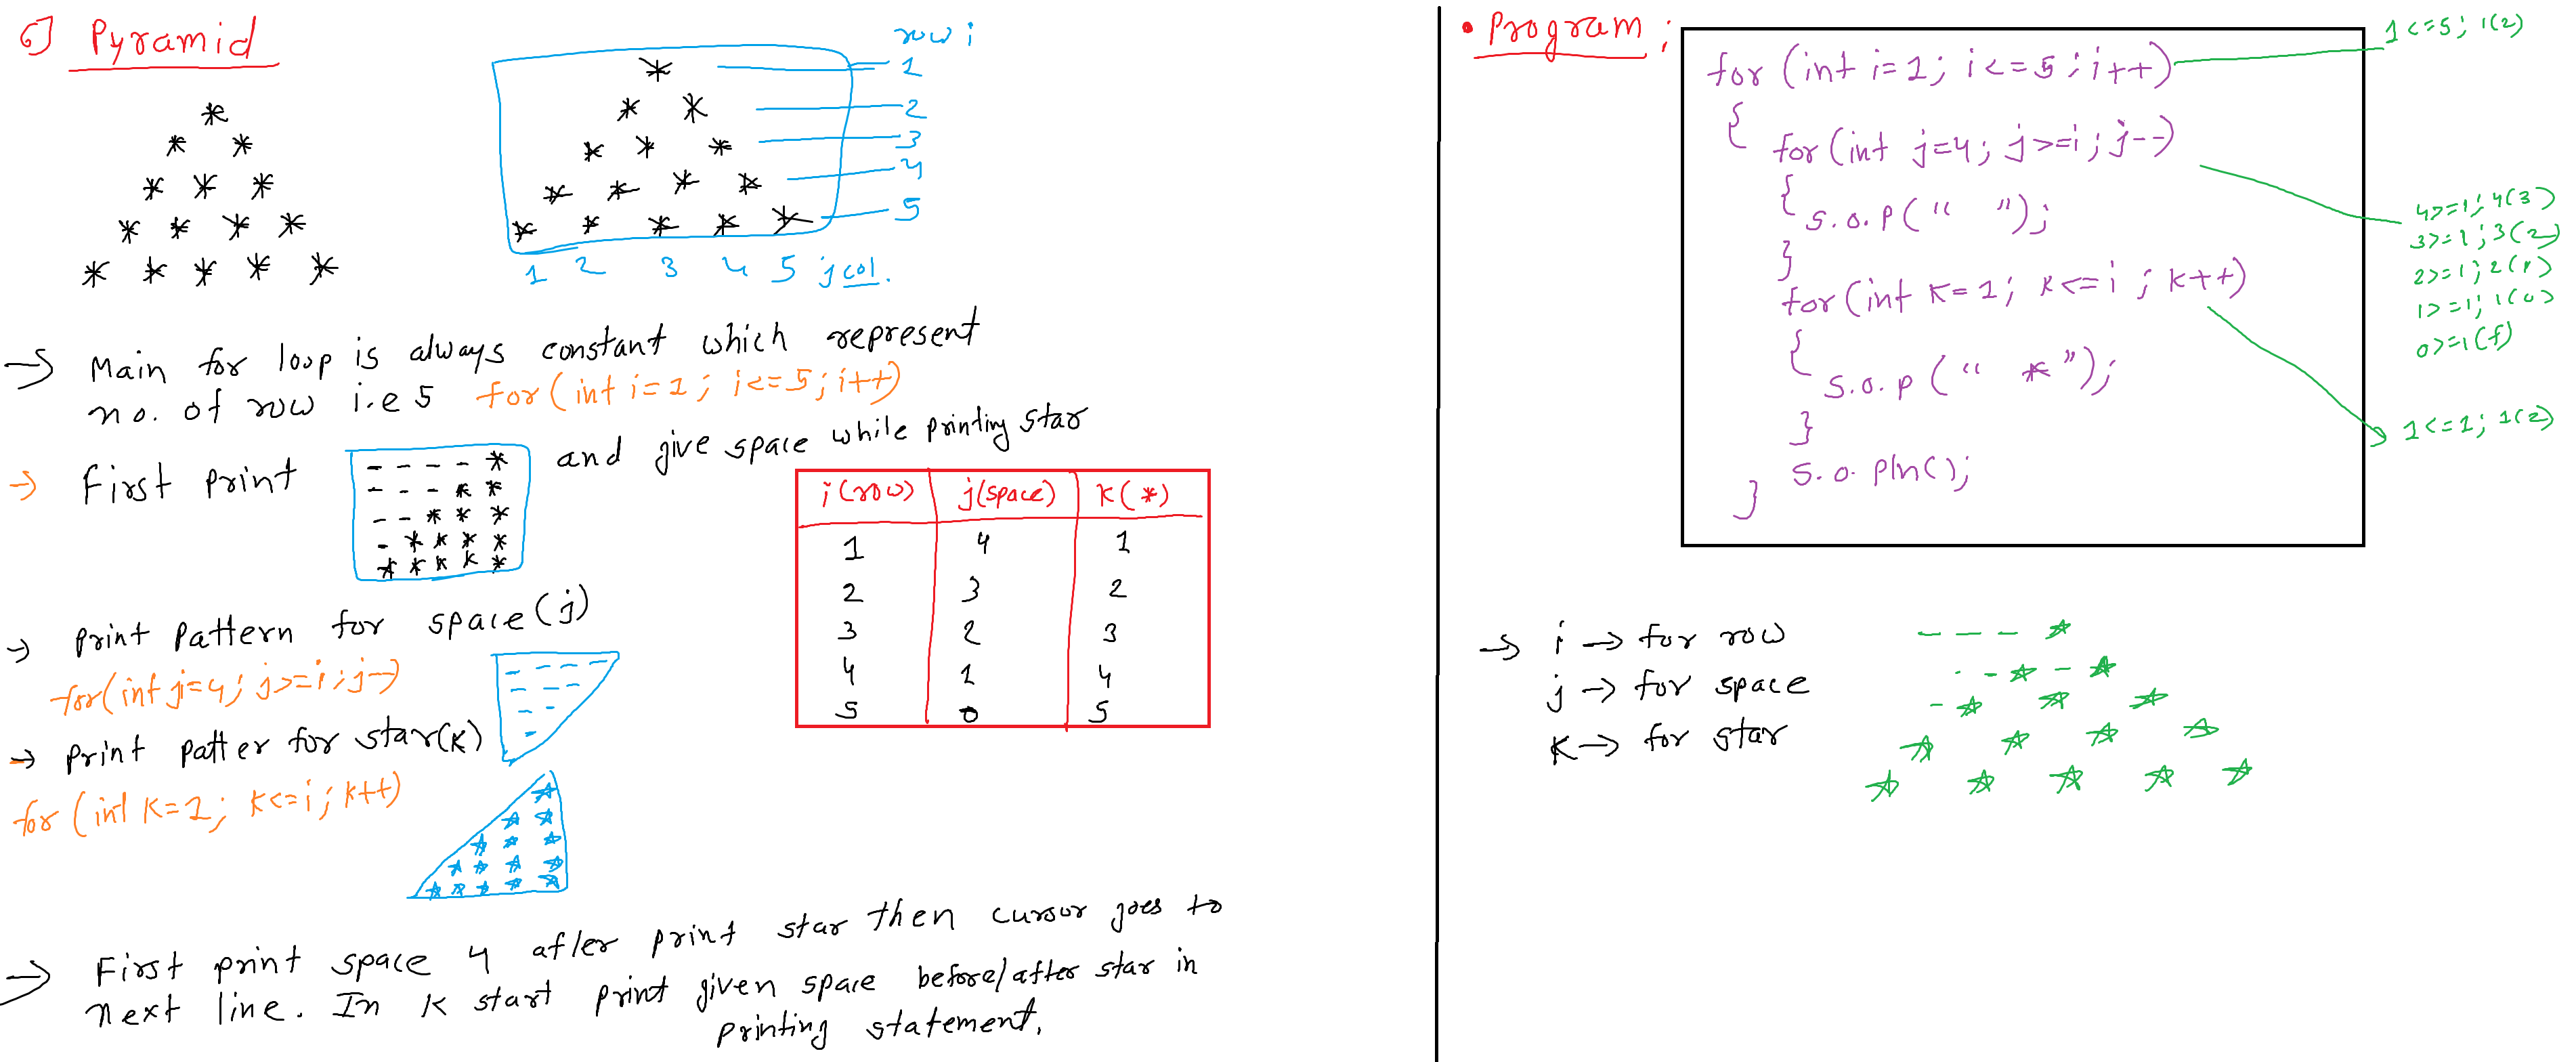 6] Pyramid
*
* *
* * *
* * * *
* * * * *
row i
* 1
* * 2
* * * 3
* * * * 4
* * * * * 5
1 2 3 4 5 j col.
→ Main for loop is always constant which represent
no. of row i.e 5 for(int i=1; i<=5; i++)
→ First print
- - - - *
- - - * *
- - * * *
- * * * *
* * * * *
and give space while printing star
i(row) j(space) k(*)
1 4 1
2 3 2
3 2 3
4 1 4
5 0 5
→ print pattern for space(j)
for(int j=4; j>=i; j--)
- - - -
- - -
- -
-
→ print patter for star(k)
for(int k=1; k<=i; k++)
*
* *
* * *
* * * *
* * * * *
→ First print space 4 after print star then cursor goes to
next line. In k start print given space before/after star in
printing statement.
• Program;
for (int i=1; i<=5; i++)
{
for(int j=4; j>=i; j--)
{
S.o.p(" ");
}
for(int k=1; k<=i; k++)
{
S.o.p(" *");
}
S.o.pln();
}
1<=5; 1(2)
4>=1; 4(3)
3>=1; 3(2)
2>=1; 2(1)
1>=1; 1(0)
0>=1(f)
1<=1; 1(2)
→ i → for row
j → for space
k → for star
- - - *
- - * - *
- * * *
* * * *
* * * * *